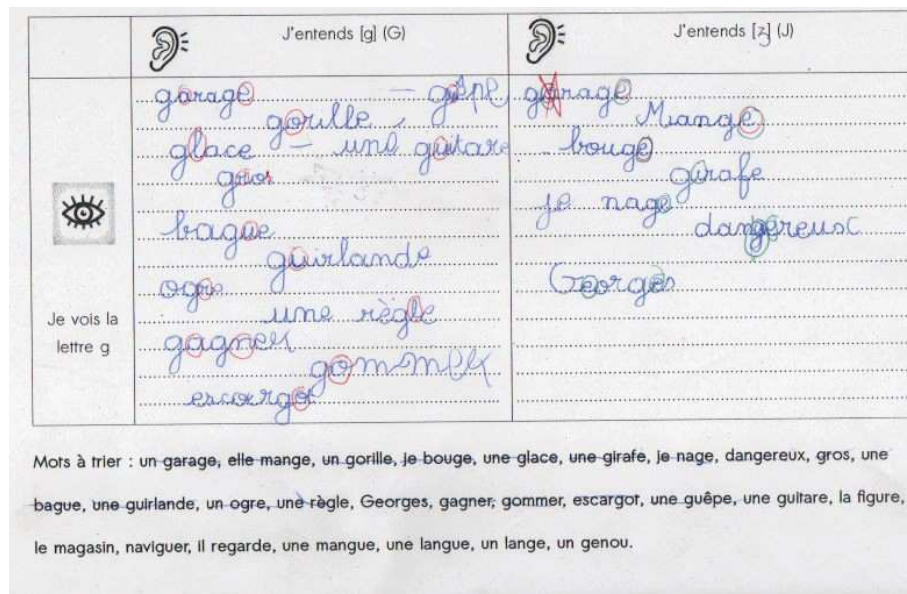 J'entends [g] (G)
J'entends [ʒ] (J)
garage - guêpe
gorille,
glace - une guitare
gros
bague
guirlande
ogre
une règle
gagner
gommer
escargot
garage
Mange
bouge
girafe
je nage
dangereux
Georges
Je vois la
lettre g
Mots à trier : un garage, elle mange, un gorille, je bouge, une glace, une girafe, je nage, dangereux, gros, une
bague, une guirlande, un ogre, une règle, Georges, gagner, gommer, escargot, une guêpe, une guitare, la figure,
le magasin, naviguer, il regarde, une mangue, une langue, un lange, un genou.